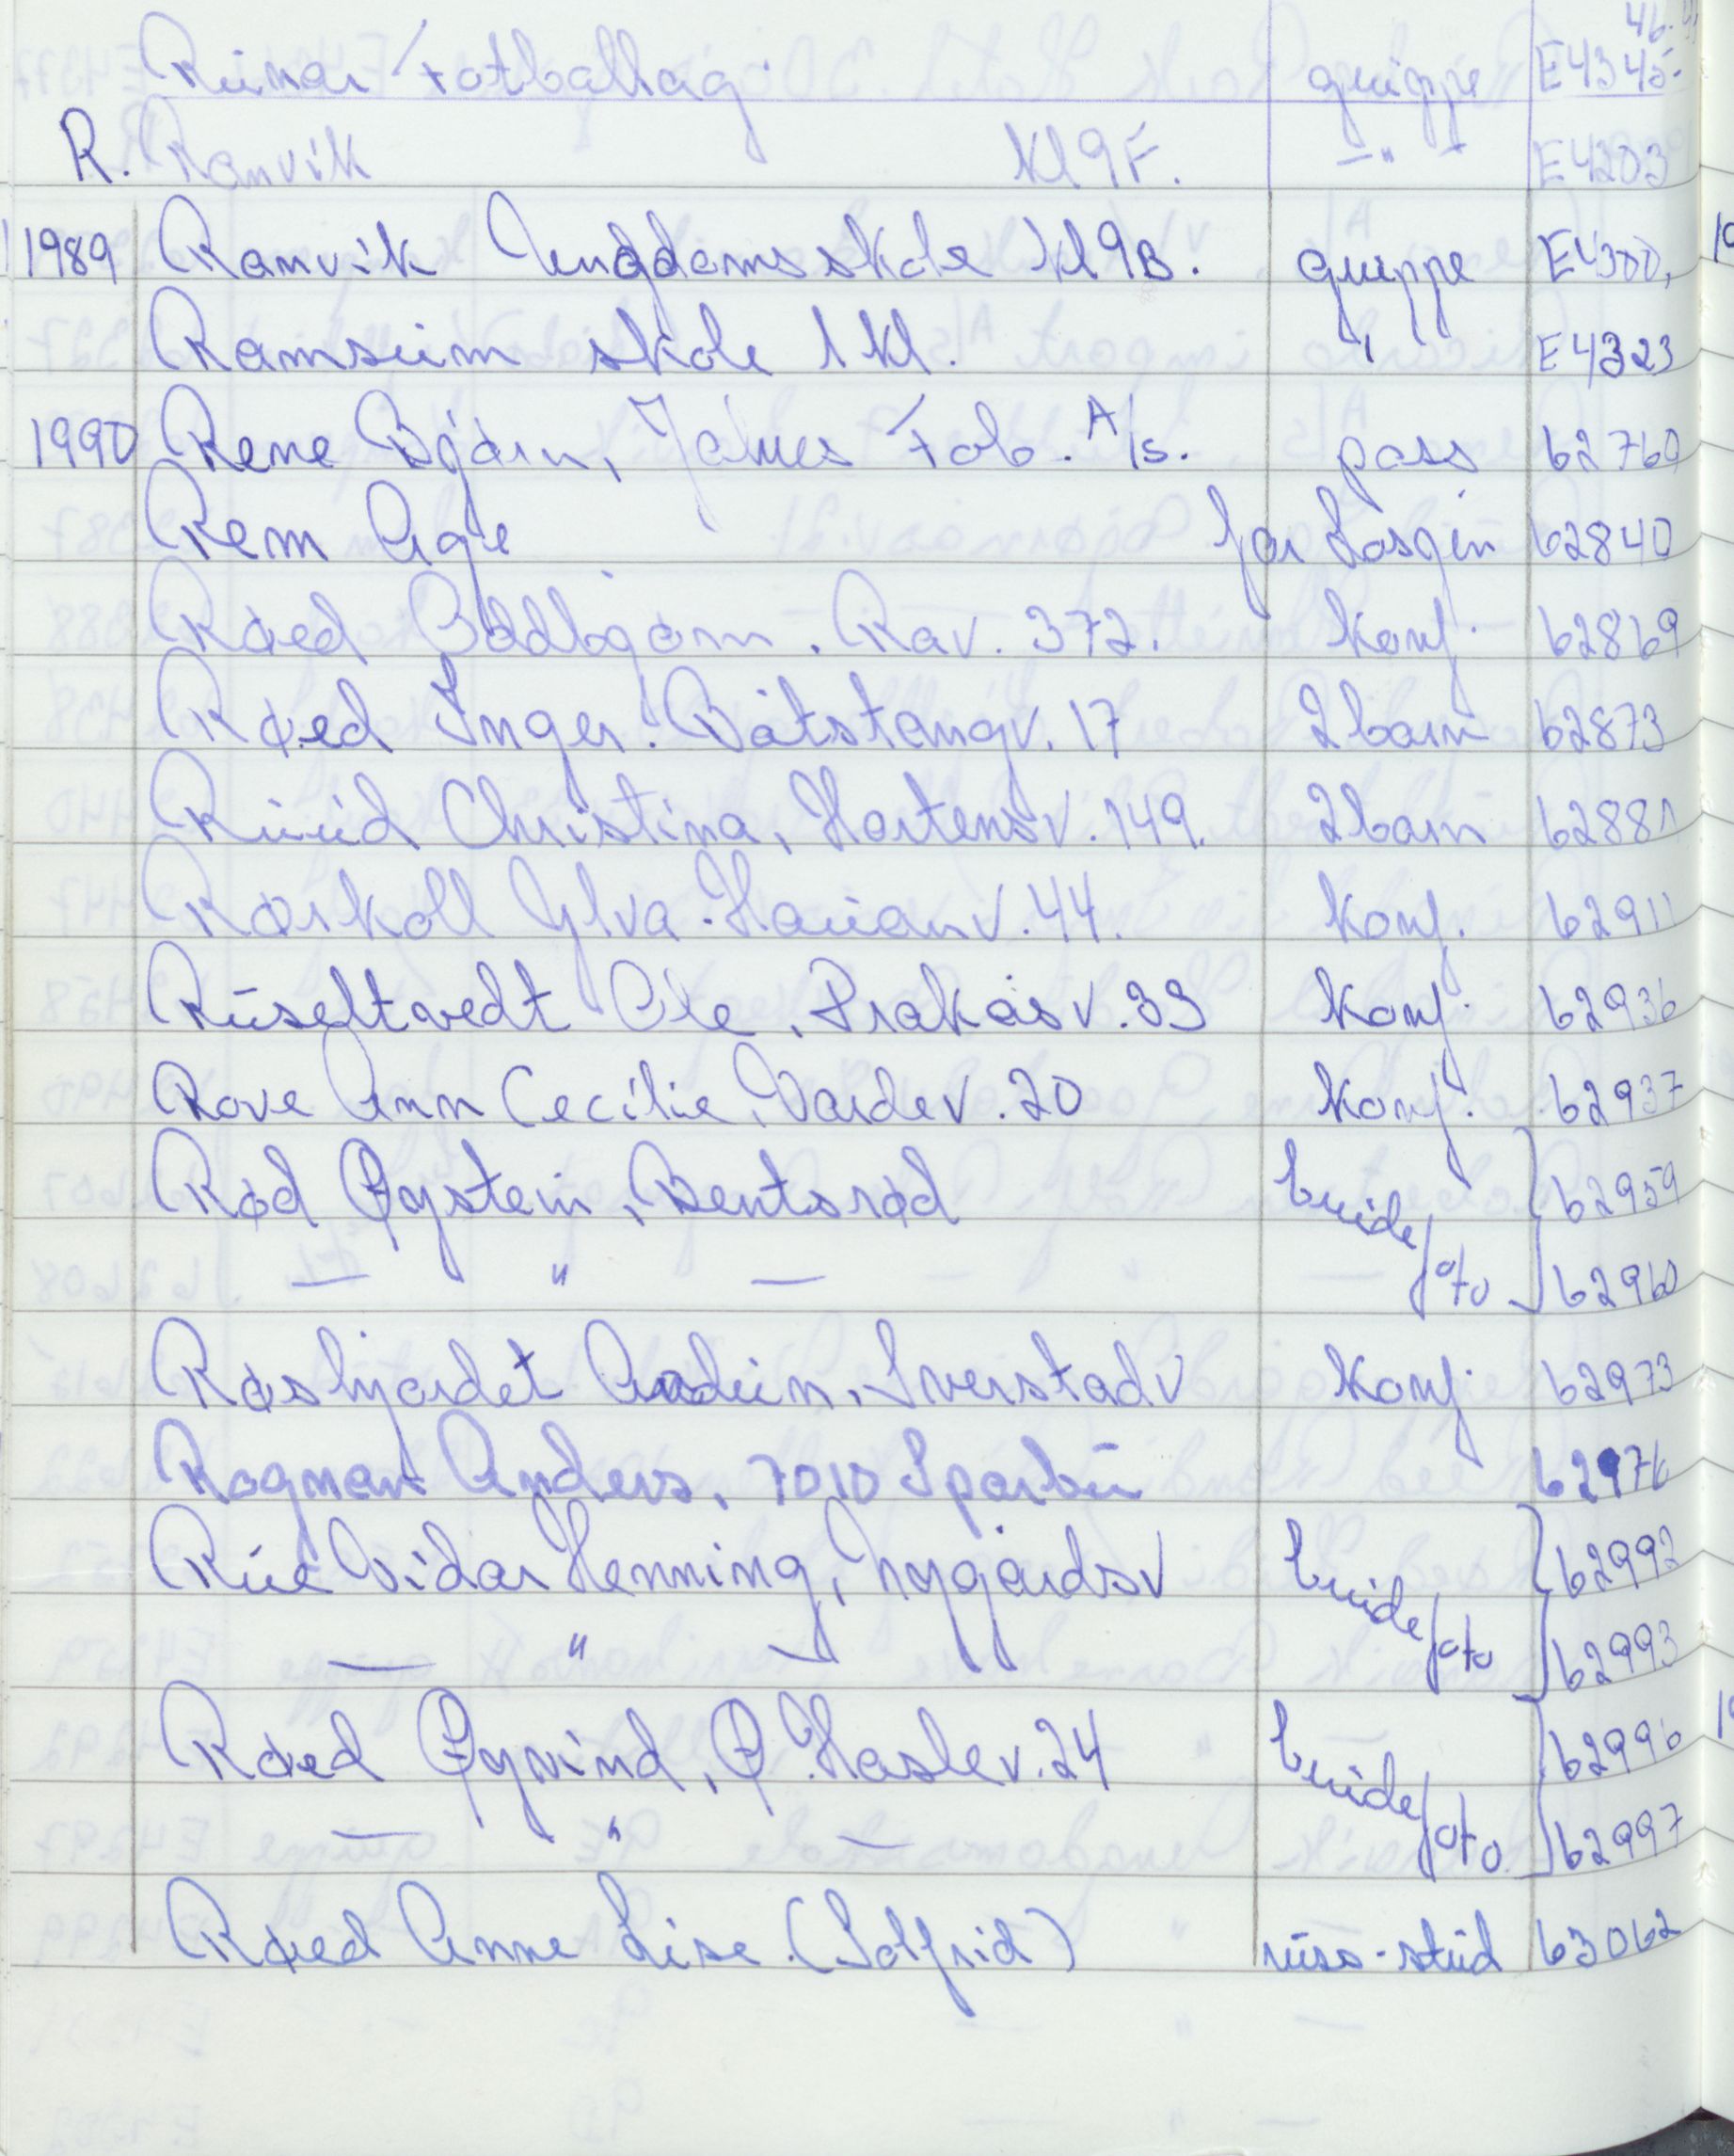 46.
Runar Fotballag gruppe E4345-
R. Ranvik Kl 9F. — " — E4203
1989 Ranvik Ungdomsskole kl 9B. gruppe E4300,
Ramsum skole 1 kl. " E4323
1990 Rene Bjørn, Fab. A/s. pass 62760
Rem Åge for Losjen 62840
Røed Oddbjørn. Rav. 372. Konf. 62869
Røed Inger. Båtstangv. 17 2 barn 62873
Ruud Christina, Hortensv. 149. 2 barn 62881
Røskoll Ylva. Hauanv. 44. Konf. 62911
Rúseltvedt Ole, Prakåsv. 33 Konf. 62936
Rove Ann Cecilie, Vardev. 20 Konf. 62937
Rød Øystein, Bentsrød brudefoto 62959
— " — 62960
Røshjordet Audun, Sverstadv Konf. 62973
Rogman Anders, 7010 Sparbu 62976
Rue Vidar Henning, Nygårdsv brudefoto 62992
— " — 62993
Røed Øyvind, Ø. Haslev. 24 brudefoto 62996
— " — 62997
Røed Anne Lise (Solfrid) russ-stud 63062